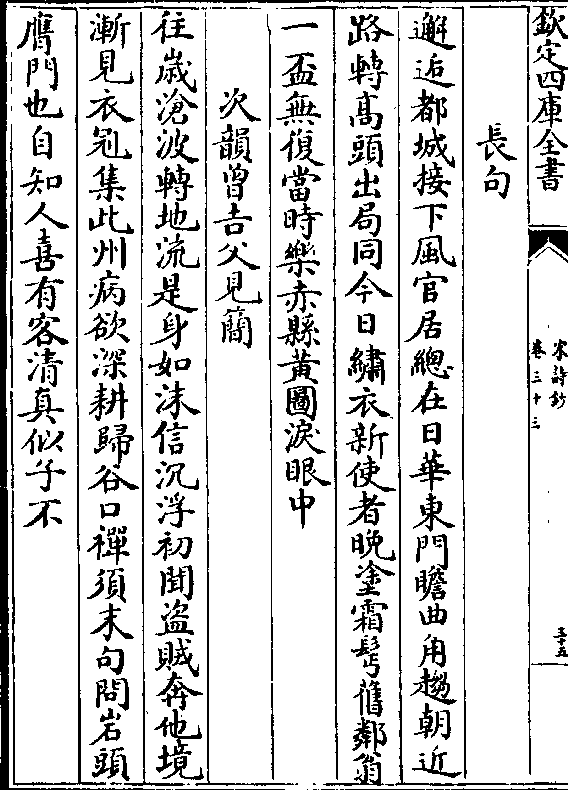 欽定四庫全書
宋詩鈔
卷三十三
三十五
長句
邂逅都城接下風官居總在日華東門瞻曲角趨朝近
路轉髙頭出局同今日繡衣新使者晚塗霜髩舊鄰翁
一盃無復當時樂赤縣黄圖淚眼中
次韻曾吉父見簡
往嵗滄波轉地流是身如沫信沉浮初聞盜賊奔他境
漸見衣冠集此州病欲深耕歸谷口禪須末句問岩頭
膺門也自知人喜有客清真似子不